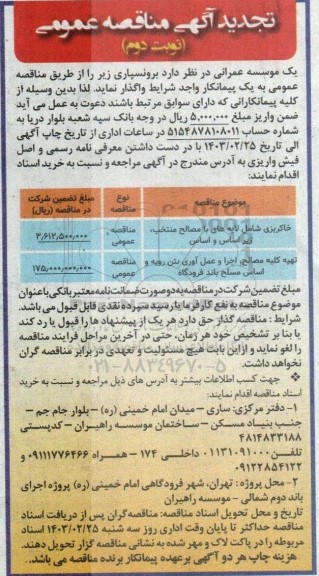 تجدید آگهی مناقصه عمومی
(نوبت دوم)
یک موسسه عمرانی در نظر دارد برونسپاری زیر را از طریق مناقصه
عمومی به یک پیمانکار واجد شرایط واگذار نماید. لذا بدین وسیله از
کلیه پیمانکارانی که دارای سوابق مرتبط باشند دعوت به عمل می آید
ضمن واریز مبلغ ۵,۰۰۰,۰۰۰ ریال در وجه بانک سپه شعبه بلوار دریا به
شماره حساب ۵۱۵۴۸۷۸۱۰۸۰۱۱ در ساعات اداری از تاریخ چاپ آگهی
الی تاریخ ۱۴۰۳/۰۲/۲۵ با در دست داشتن معرفی نامه رسمی و اصل
فیش واریزی به آدرس مندرج در آگهی مراجعه و نسبت به خرید اسناد
اقدام نمایند:
موضوع مناقصه نوع مناقصه مبلغ تضمین شرکت در مناقصه (ریال)
خاکریزی شامل لایه های با مصالح منتخب، زیر اساس و اساس مناقصه عمومی ۳,۶۱۲,۵۰۰,۰۰۰
تهیه کلیه مصالح، اجرا و عمل آوری بتن رویه و اساس مسلح باند فرودگاه مناقصه عمومی ۱۷۵,۰۰۰,۰۰۰,۰۰۰
مبلغ تضمین شرکت در مناقصه به دو صورت ضمانت نامه معتبر بانکی با عنوان
موضوع مناقصه به نفع کارفرما یا رسید سپرده نقدی قابل قبول می باشد.
شرایط : مناقصه گذار حق دارد هر یک از پیشنهاد ها را قبول یا رد کند
یا بنا بر تشخیص خود هر زمان، حتی در آخرین مراحل فرایند مناقصه
را لغو نماید و از این بابت هیچ مسئولیت و تعهدی در برابر مناقصه گران
نخواهد داشت.
۰۲۱-۸۸۳۴۹۶۷۰-۵
جهت کسب اطلاعات بیشتر به آدرس های ذیل مراجعه و نسبت به خرید
اسناد مناقصه اقدام نمایند:
۱- دفتر مرکزی: ساری – میدان امام خمینی (ره) – بلوار جام جم –
جنب بنیاد مسکن – ساختمان موسسه راهیران – کدپستی
۴۸۱۴۸۳۳۱۸۸
تلفن ۰۱۱۳۱۰۹۱۰۰۰ داخلی ۱۷۴ – همراه ۰۹۱۱۱۷۷۶۴۶۶ و
۰۹۱۲۲۸۵۴۱۲۲
۲- محل پروژه : تهران، شهر فرودگاهی امام خمینی (ره) پروژه اجرای
باند دوم شمالی – موسسه راهیران
تاریخ و محل تحویل اسناد مناقصه: مناقصه گران پس از دریافت اسناد
مناقصه حداکثر تا پایان وقت اداری روز سه شنبه ۱۴۰۳/۰۲/۲۵ اسناد
مربوطه را در پاکت لاک و مهر شده به نشانی مناقصه گزار تحویل دهند.
هزینه چاپ هر دو آگهی بر عهده پیمانکار برنده مناقصه می باشد.